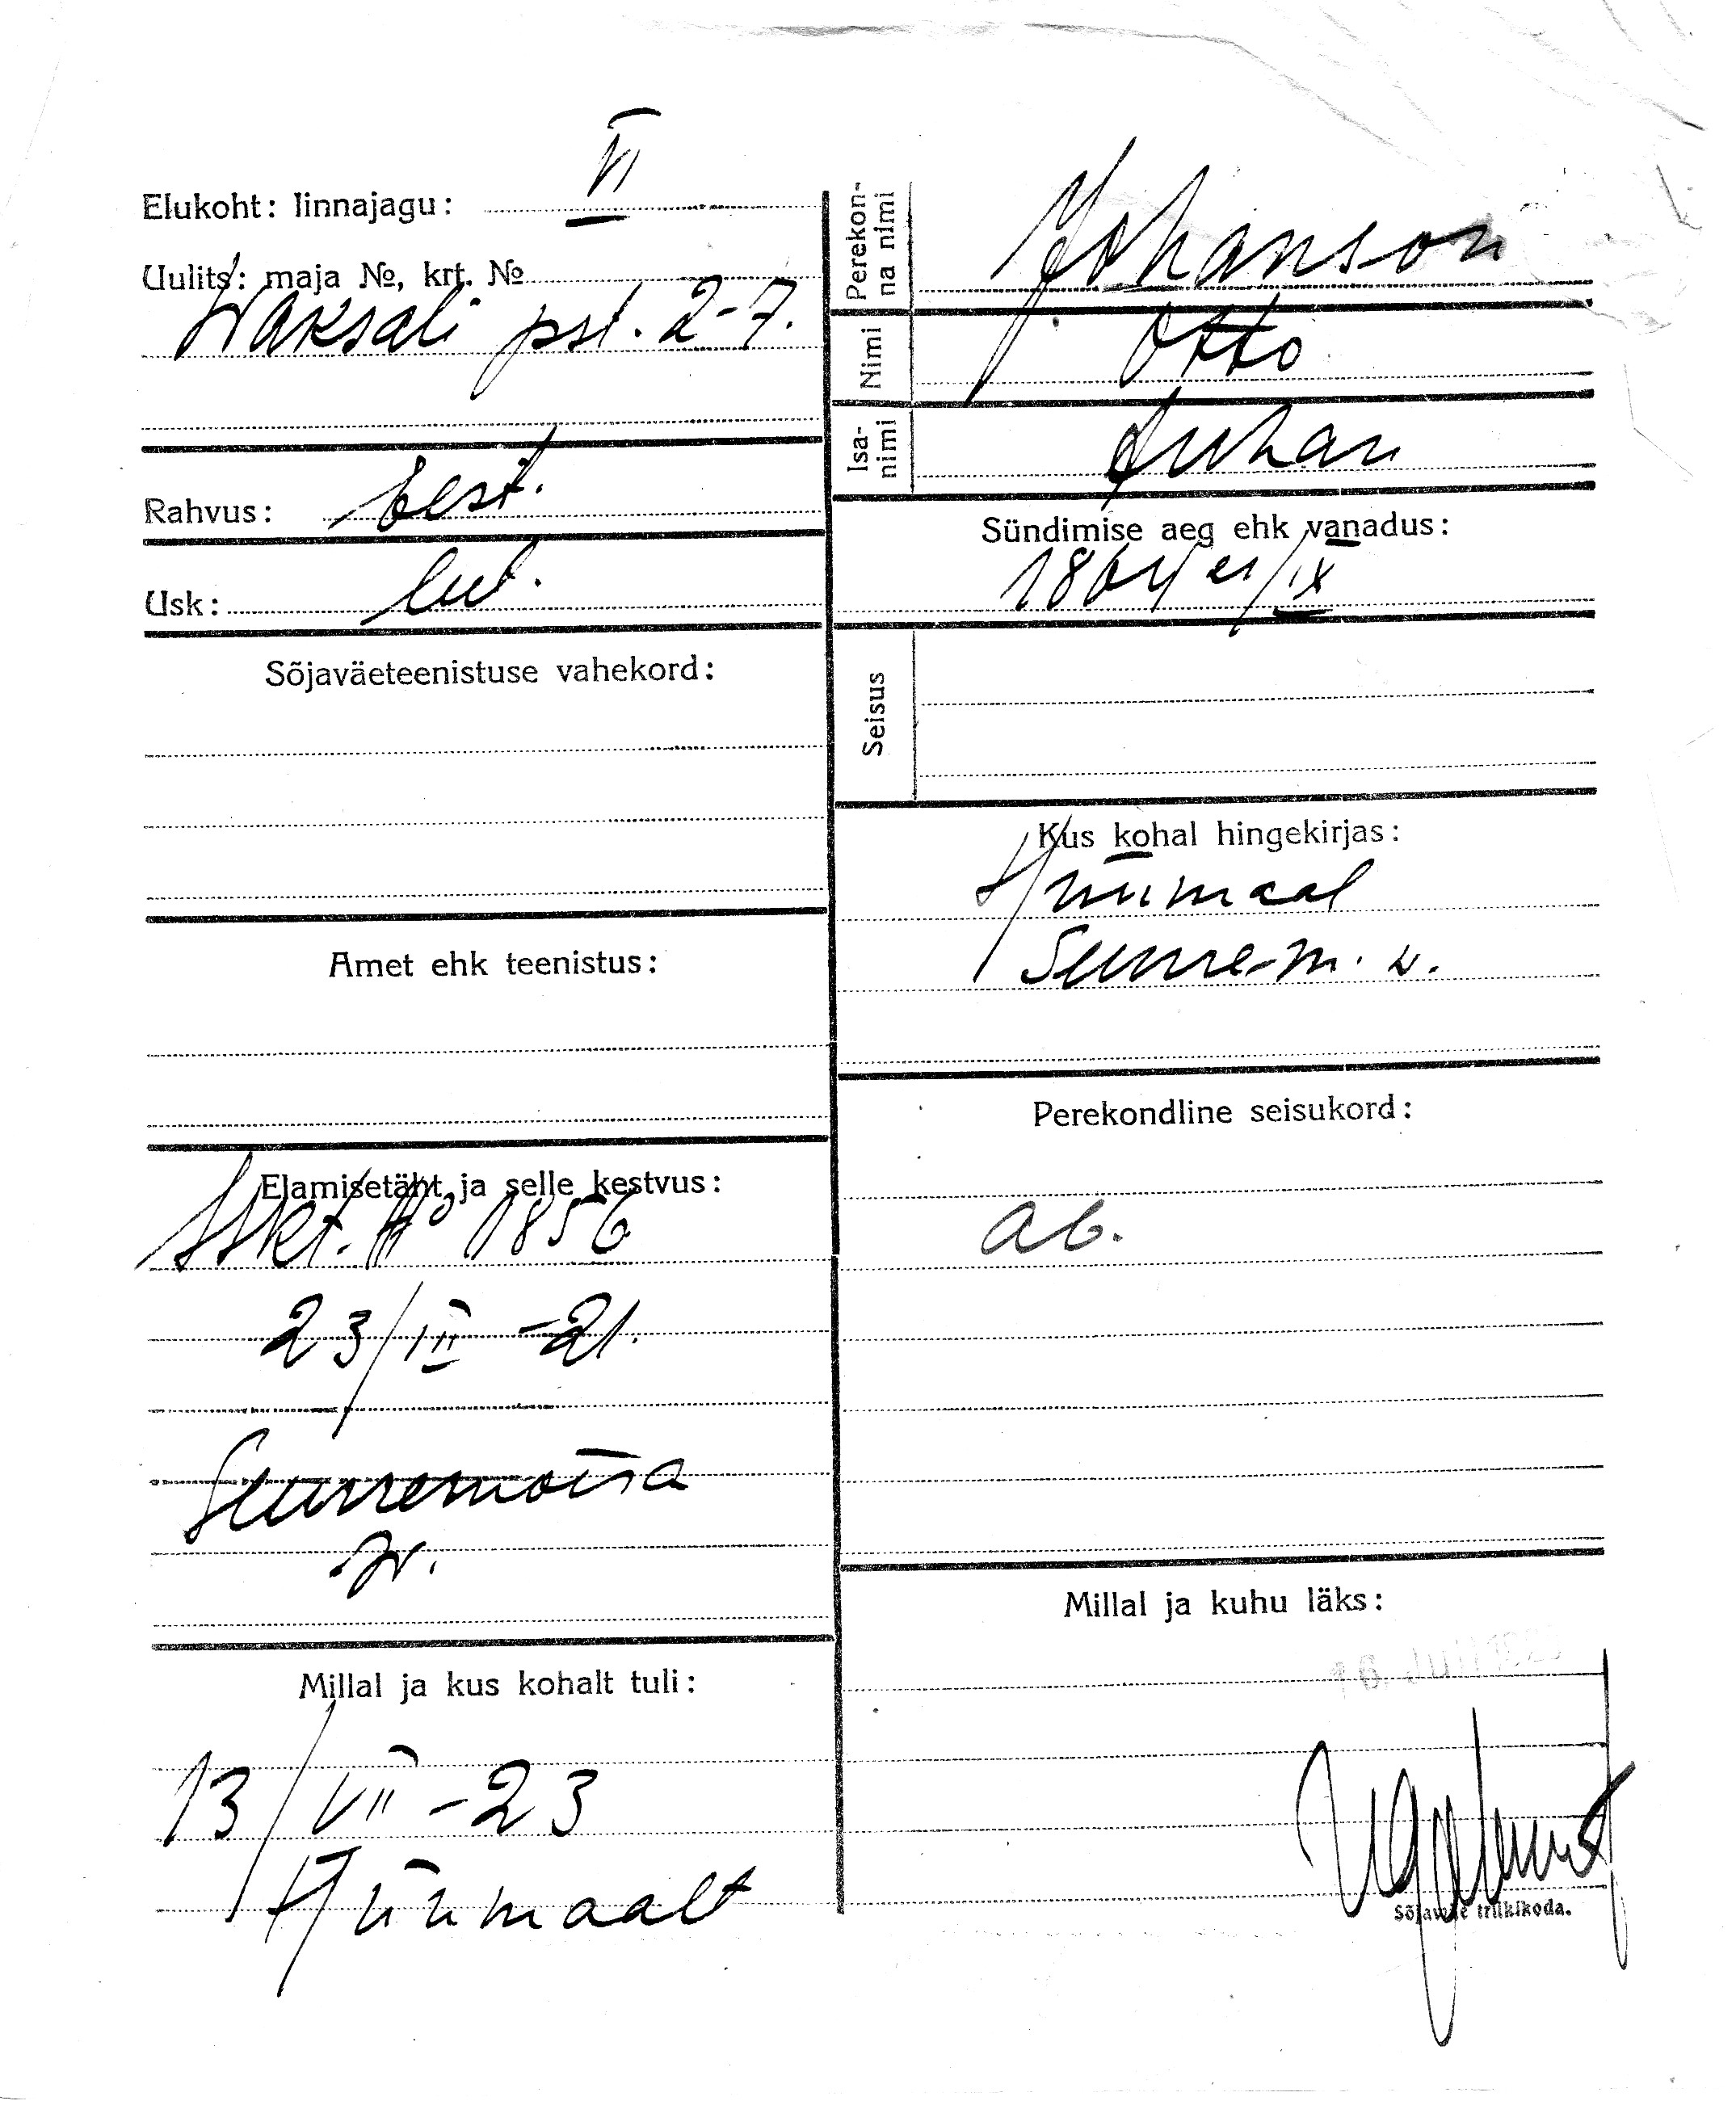 Elukoht: linnajagu: VI
Uulits: maja №, krt. №
Waksali pst. 2-7.
Rahvus: eest.
Usk: lut.
Sõjaväeteenistuse vahekord:
Amet ehk teenistus:
Elamisetäht ja selle kestvus:
Iskt. № 1856
23/III -21.
Suuremõisa
w.
Millal ja kus kohalt tuli:
13/VII -23
Hiiumaalt
Perekon-
na nimi
Johanson
Nimi
Otto
Isa-
nimi
Juhan
Sündimise aeg ehk vanadus:
1864 21/IX
Seisus
Kus kohal hingekirjas:
Hiiumaal
Suure-m. w.
Perekondline seisukord:
ab.
Millal ja kuhu läks:
Sõjaväe trükikoda.